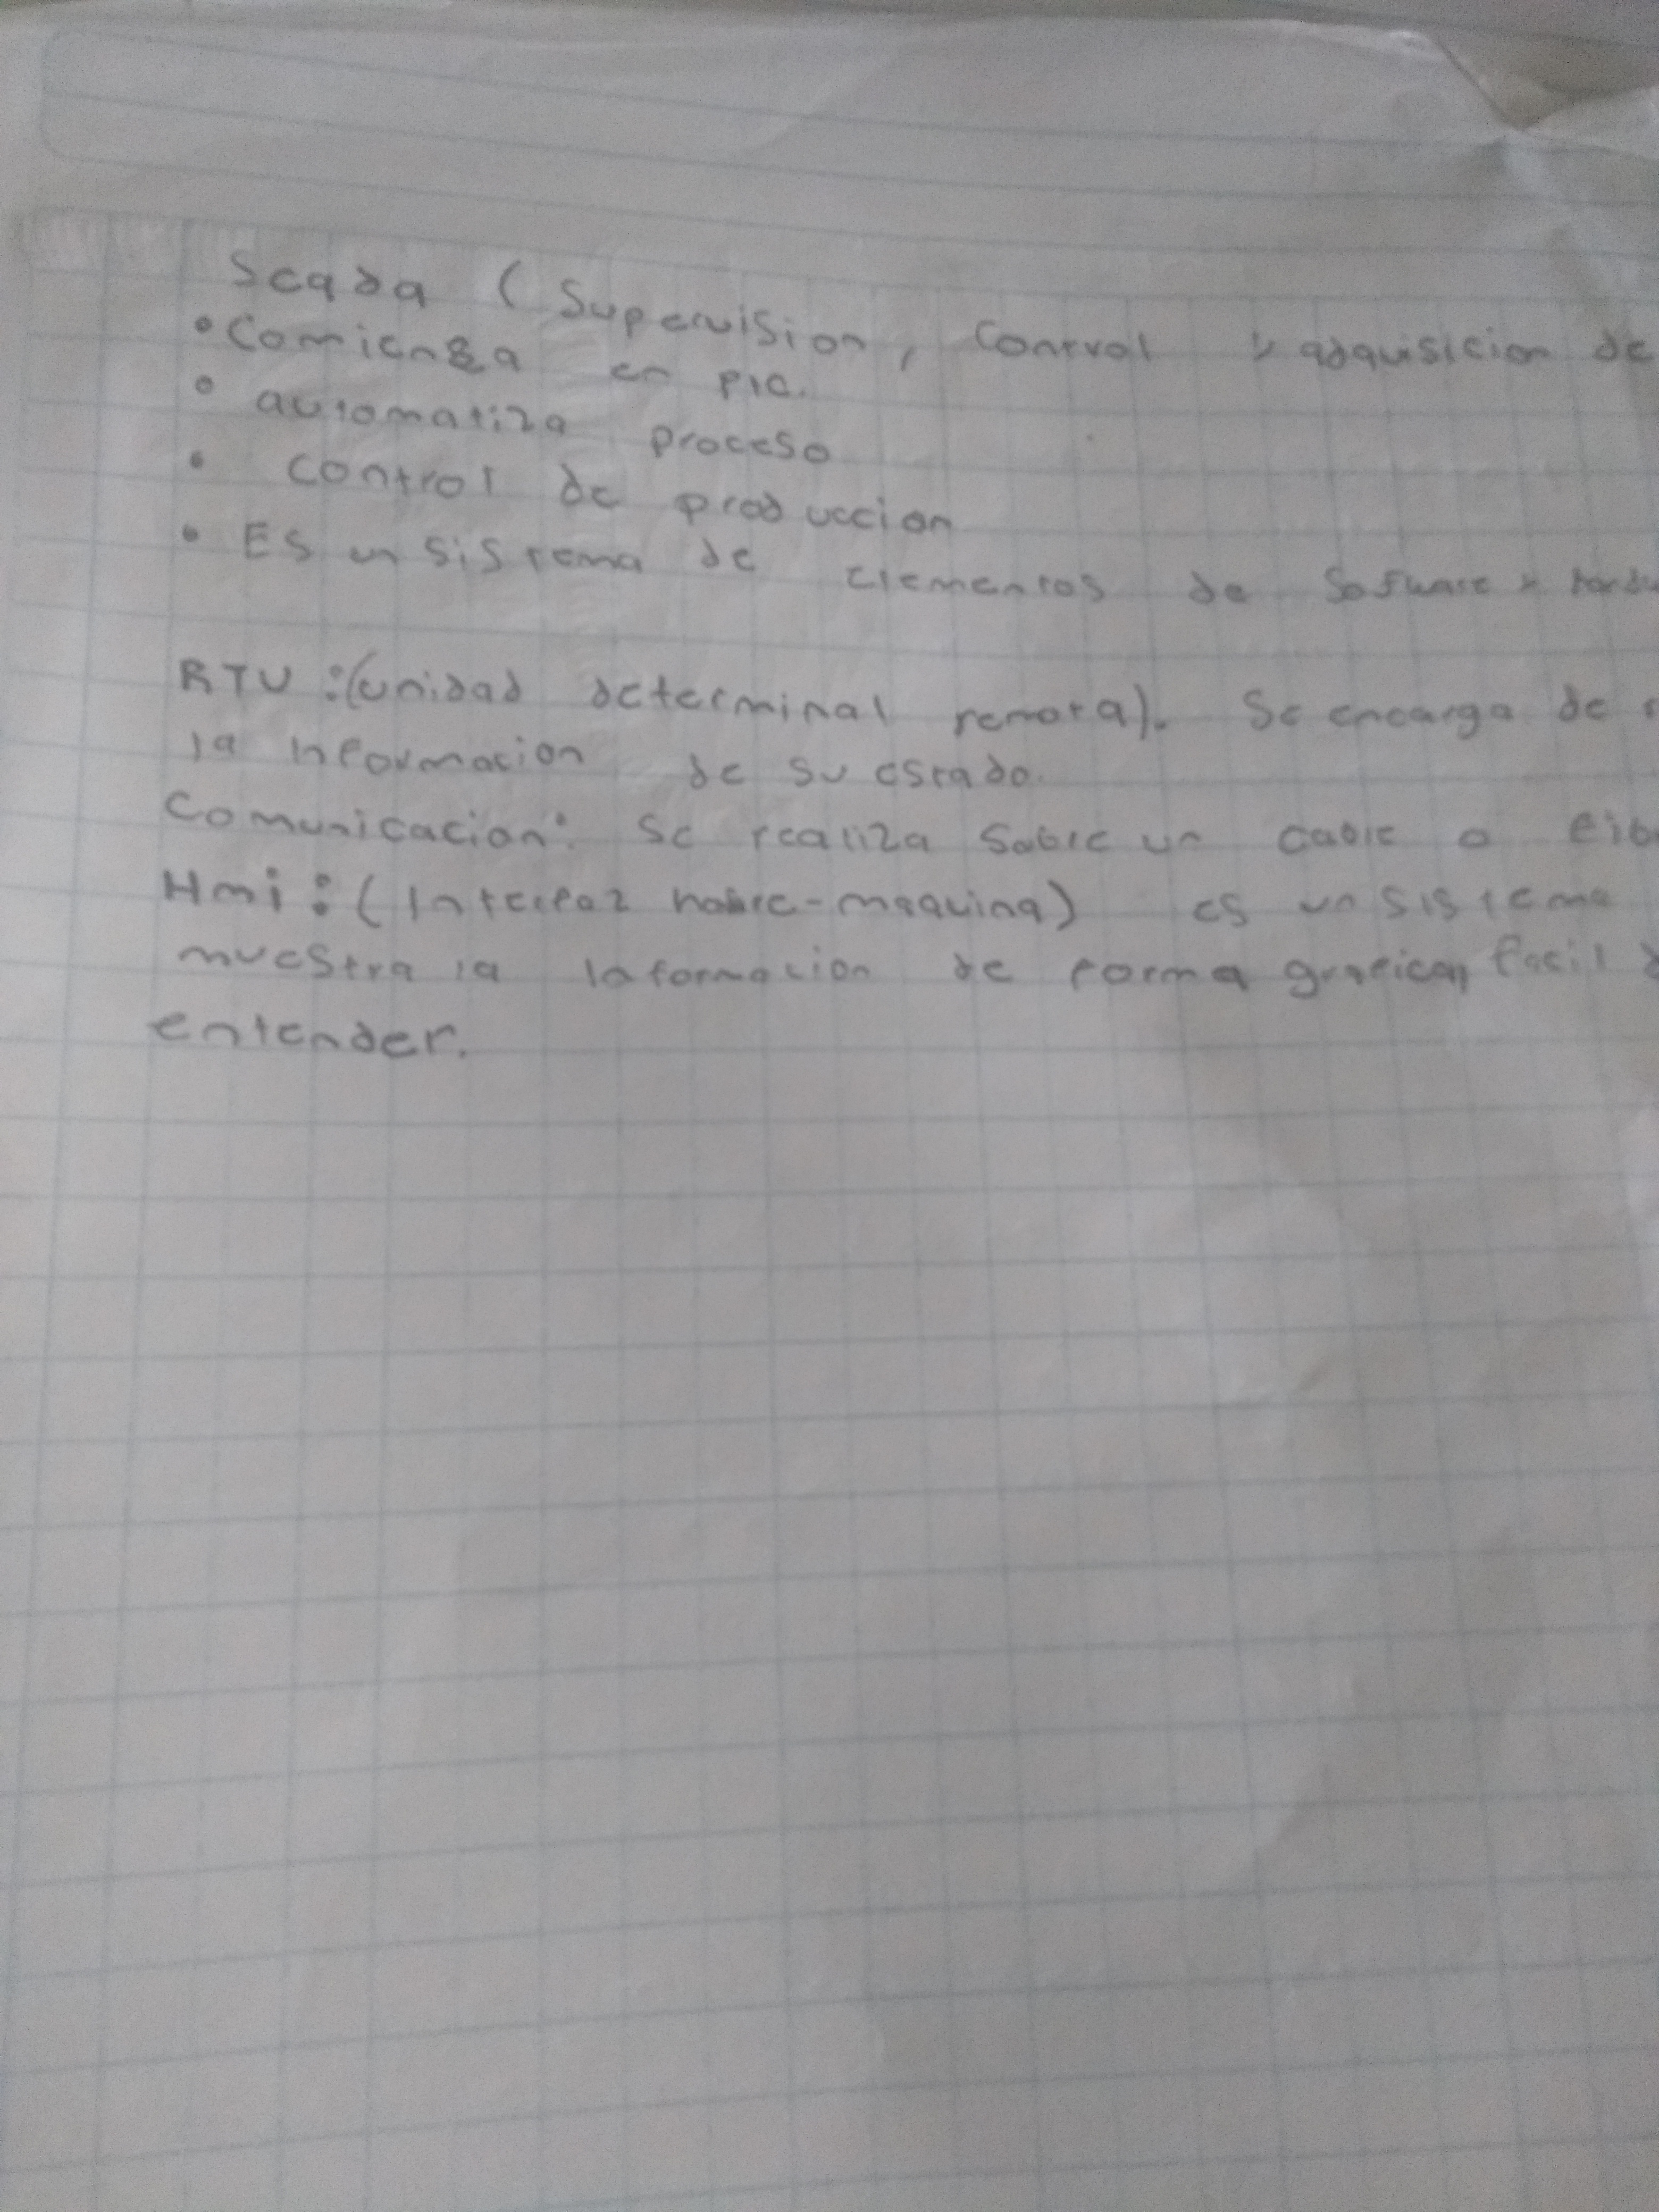 Scada (Supervision, Control y adquisicion de
• Comienza en plc.
• automatiza proceso
• control de produccion
• Es un sistema de elementos de Software y
RTU :(unidad determinal remota). Se encarga de
la informacion de su estado.
Comunicacion: Se realiza sobre un cable o
Hmi : (Interfaz hombre-maquina) es un sistema
muestra la informacion de forma grafica, facil d
entender.